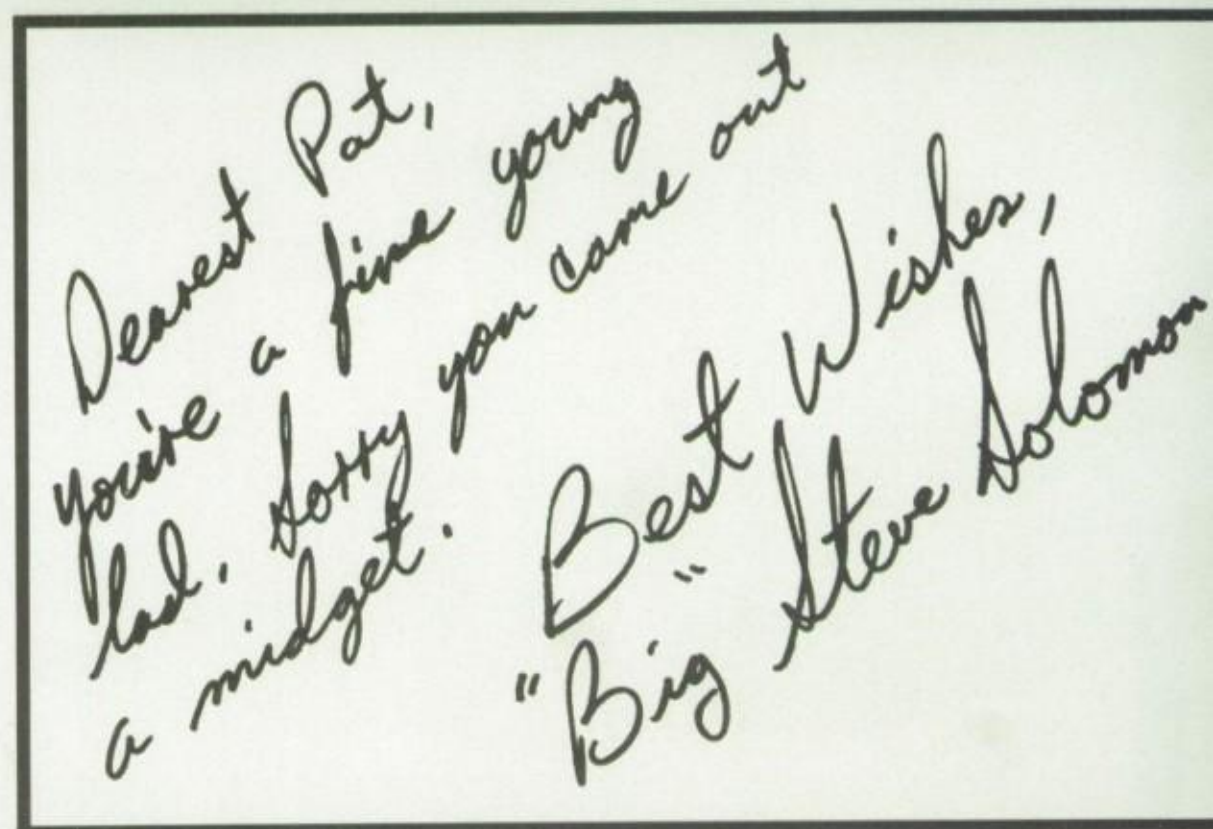 Dearest Pat,
you're a fine young
lad. Sorry you came out
a midget.
Best Wishes,
"Big" Steve Solomon